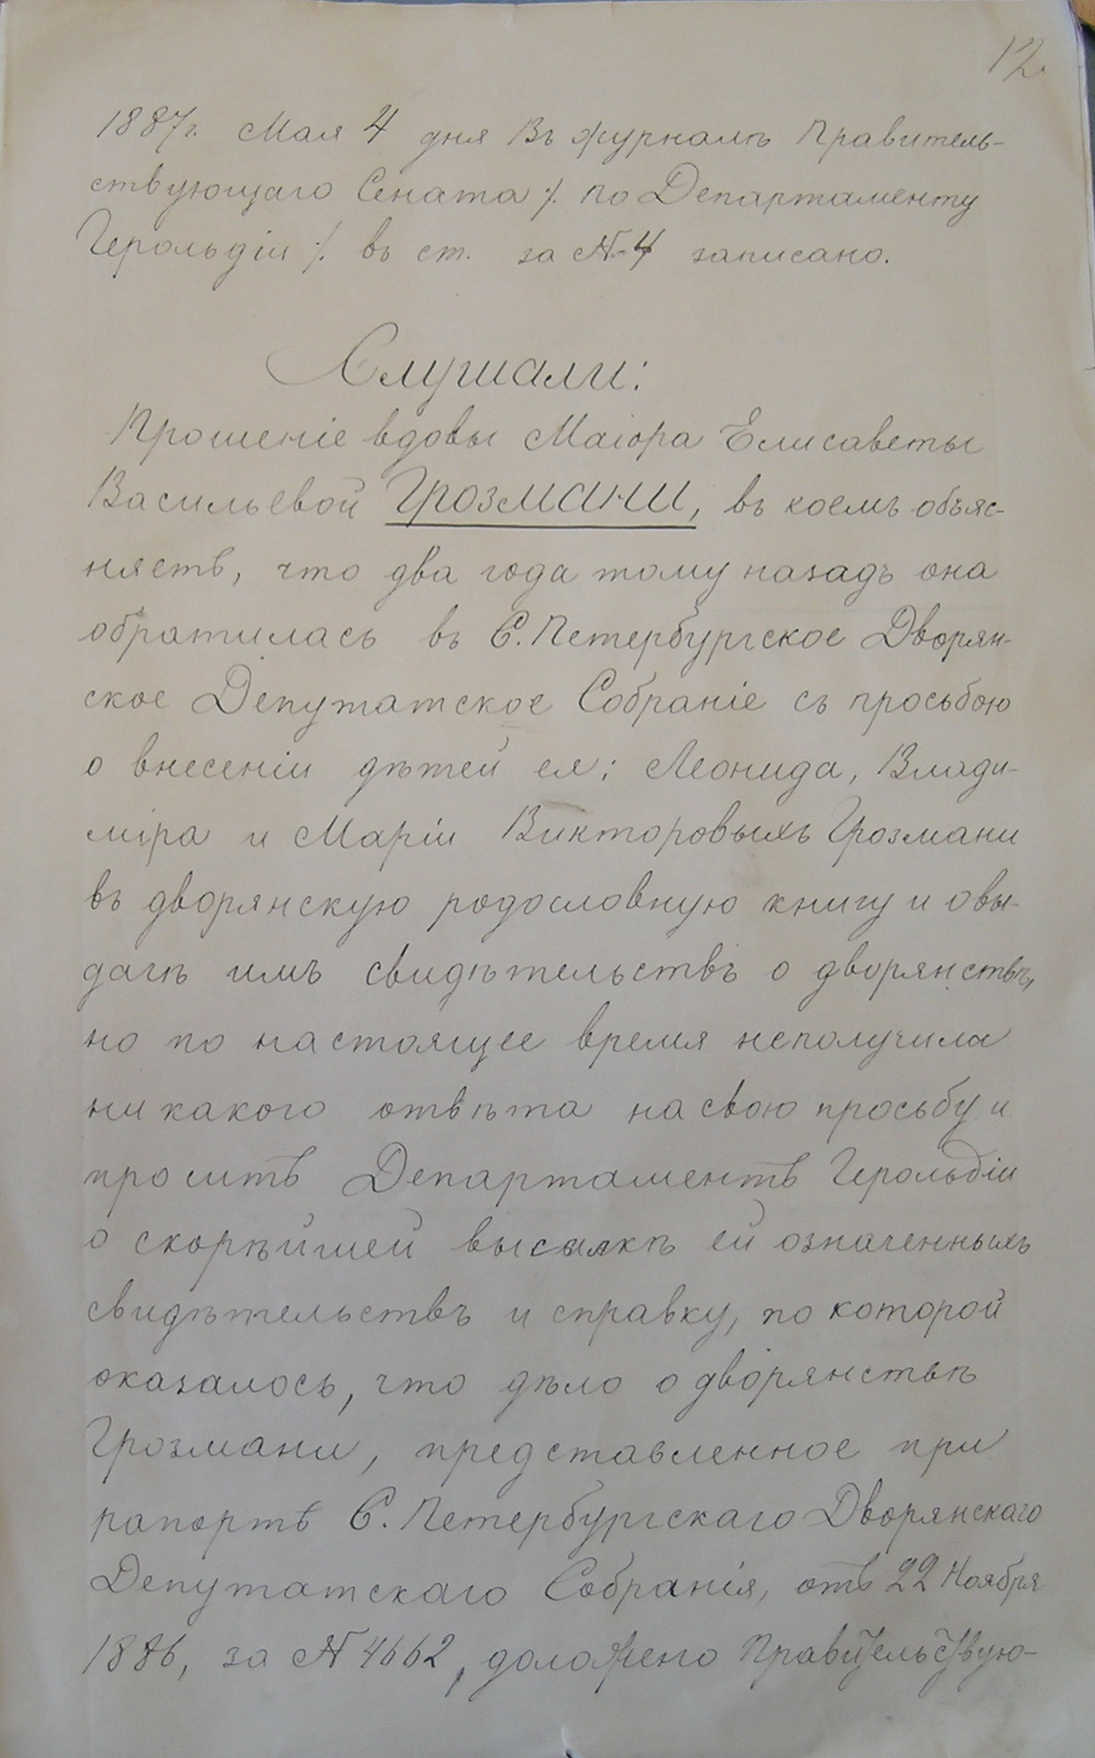 12.
1887г. Мая 4 дня Въ журналѣ Правитель-
ствующаго Сената ./. по Департаменту
Герольдіи ./. въ ст. за №4 записано.
Слушали:
Прошеніе вдовы Маіора Елисаветы
Васильевой Грозмани, въ коемъ объяс-
няетъ, что два года тому назадъ она
обратилась въ С. Петербургское Дворян-
ское Депутатское Собраніе съ просьбою
о внесеніи дѣтей ея: Леонида, Влади-
міра и Маріи Викторовыхъ Грозмани
въ дворянскую родословную книгу и овы-
дачѣ имъ свидѣтельствъ о дворянствѣ,
но по настоящее время неполучила
ни какого отвѣта на свою просьбу и
проситъ Департаментъ Герольдіи
о скорѣйшей высылкѣ ей означенныхъ
свидѣтельствъ и справку, по которой
оказалось, что дѣло о дворянствѣ
Грозмани, представленное при
рапортѣ С. Петербургскаго Дворянскаго
Депутатскаго Собранія, отъ 22 Ноября
1886, за № 4662, доложено Правительствую-